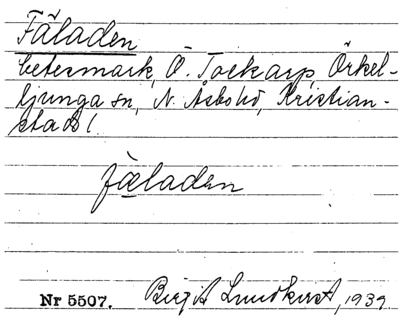 Fäladen
betesmark, Ö. Toekarp, Örkel-
ljunga sn, N. Åsbo hd, Kristian-
stads l.
fäeladen
Nr 5507. Birgit Lundkvist, 1939